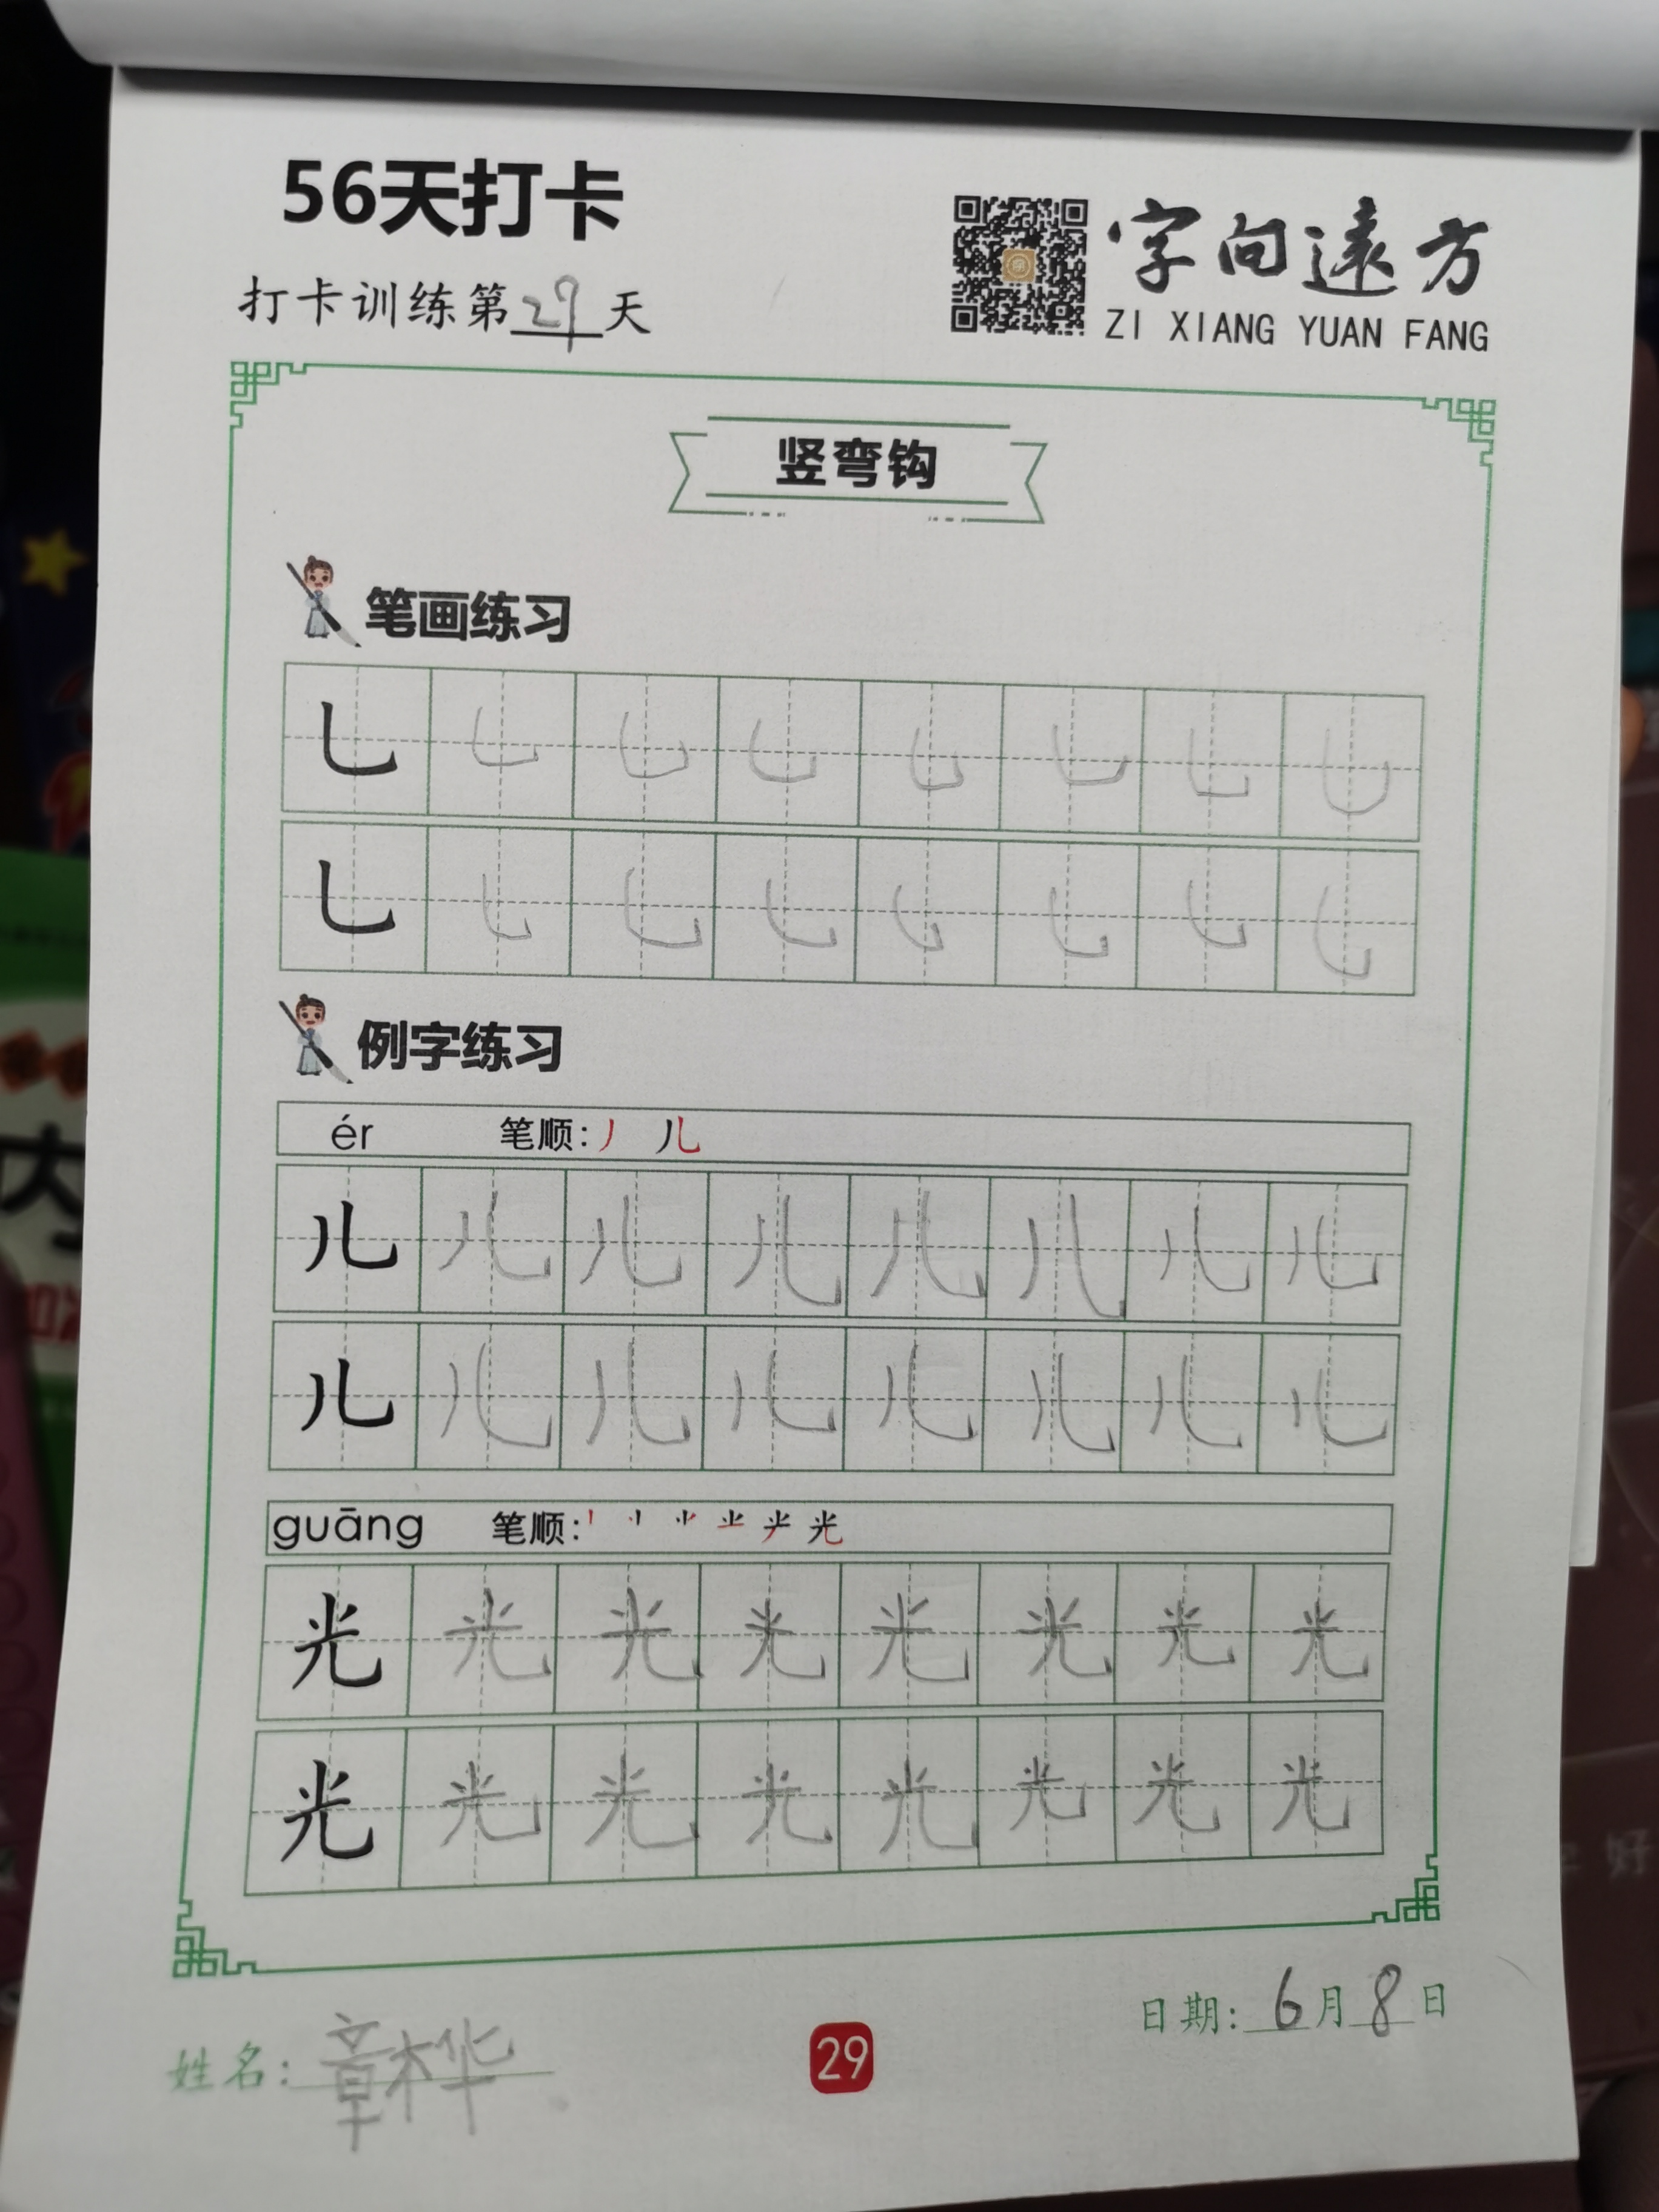 56天打卡
打卡训练第29天
字向遠方
ZI XIANG YUAN FANG
竖弯钩
笔画练习
乚 乚 乚 乚 乚 乚 乚 乚
乚 乚 乚 乚 乚 乚 乚 乚
例字练习
ér 笔顺: 丿 儿
儿 儿 儿 儿 儿 儿 儿 儿
儿 儿 儿 儿 儿 儿 儿 儿
guāng 笔顺: 光
光 光 光 光 光 光 光 光
光 光 光 光 光 光 光 光
日期: 6月8日
姓名: 章桦
29